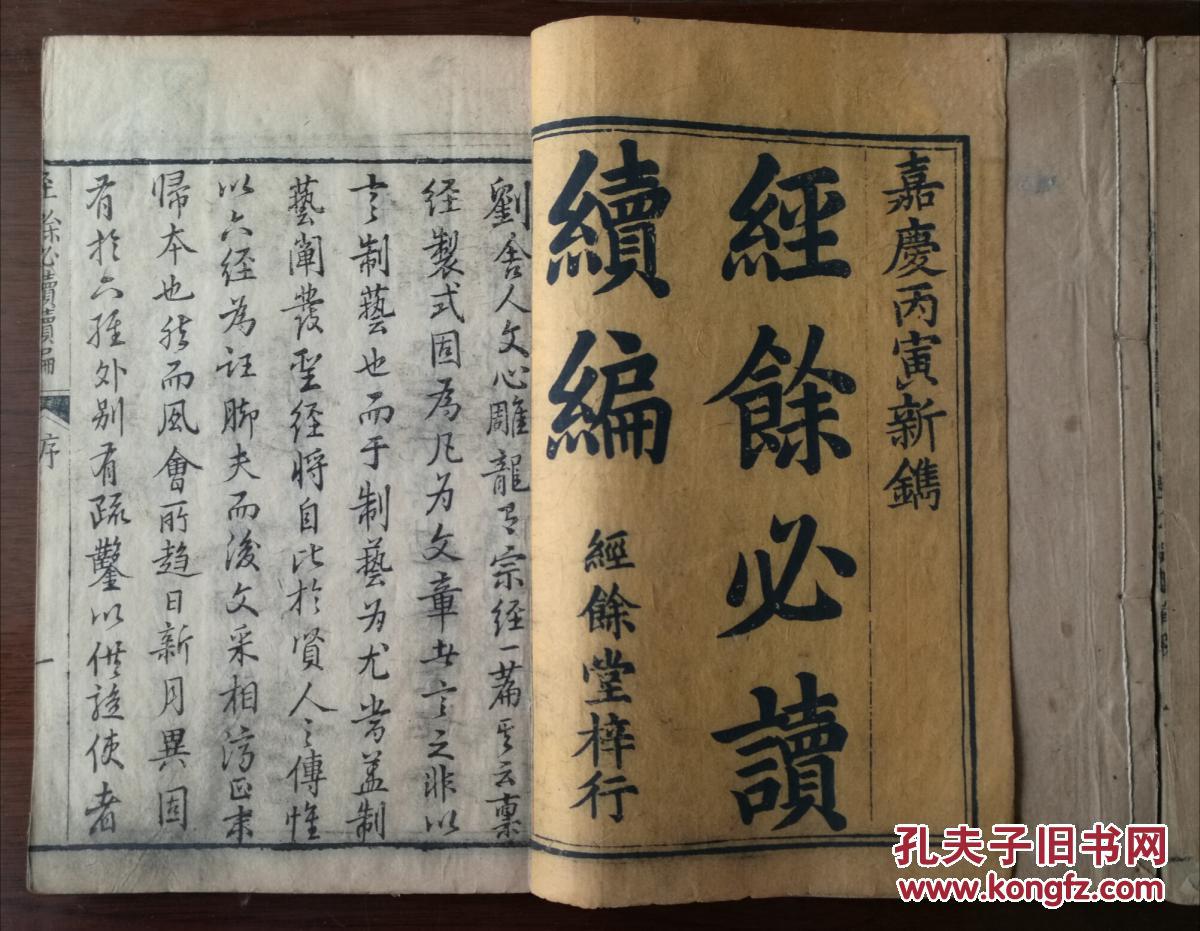 嘉慶丙寅新鐫
經餘必讀
續編
經餘堂梓行
劉舍人文心雕龍有宗經一篇其云稟
经製式固為凡为文章者言之非以
言制藝也而于制藝为尤嵜盖制
藝闡發聖经將自比於賢人之傳惟
以六经為註脚夫而後文采相濟正末
歸本也然而風會所趨日新月異固
有於六经外别有疏鑿以供驱使者
必讀續編
序
一
孔夫子旧书网
www.kongfz.com